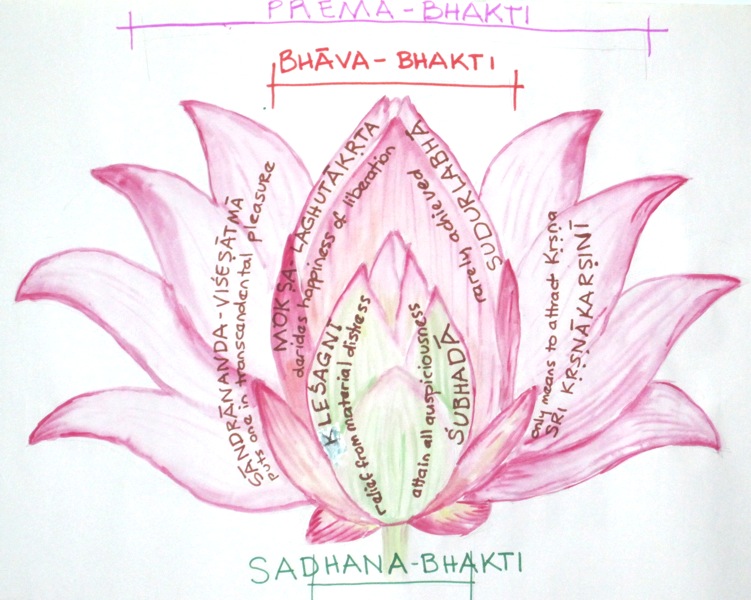 PREMA-BHAKTI
BHĀVA- BHAKTI
SĀNDRĀNANDA-VIŚEṢĀTMĀ
puts one in transcendental pleasure
MOKṢA-LAGHUTĀKṚTA
derides happiness of liberation
KLEŚAGNĪ
relief from material distress
attain all auspiciousness
ŚUBHADĀ
rarely achieved
SUDURLABHĀ
only means to attract Kṛṣṇa
SRI KṚṢṆĀKARṢIṆĪ
SADHANA-BHAKTI